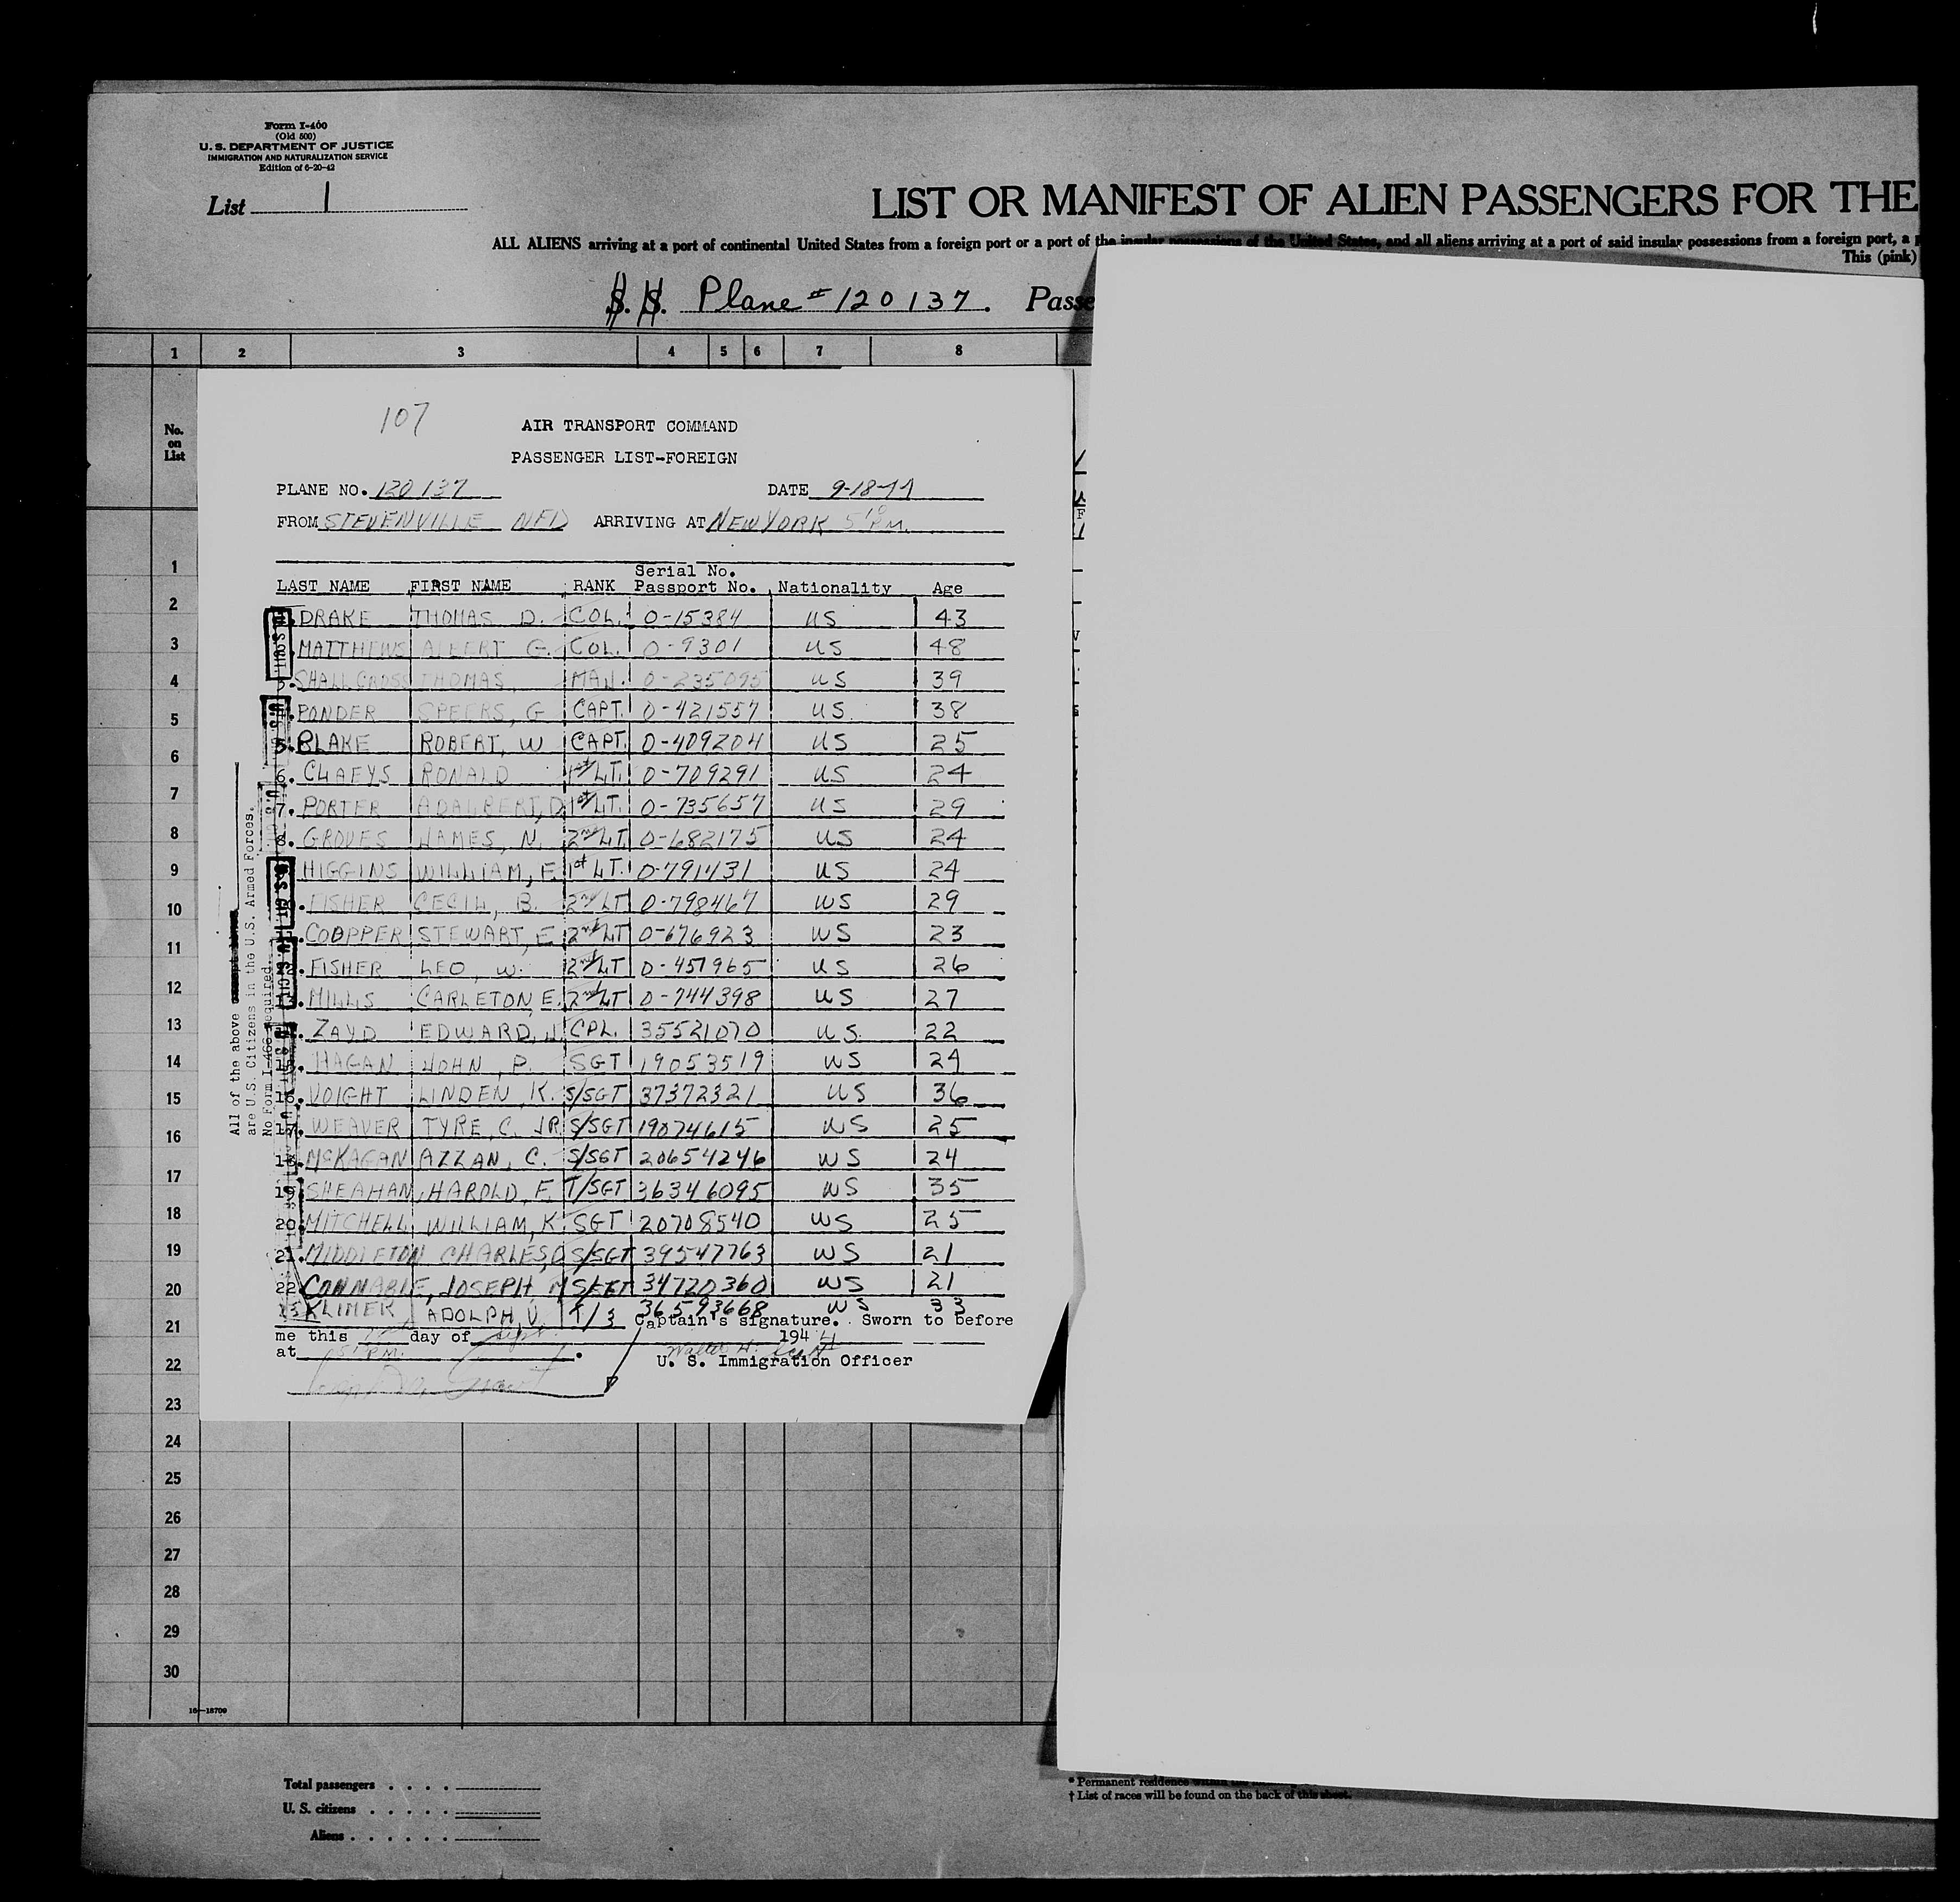 Form I-400
(Old 500)
U. S. DEPARTMENT OF JUSTICE
IMMIGRATION AND NATURALIZATION SERVICE
Edition of 6-20-42
List 1
LIST OR MANIFEST OF ALIEN PASSENGERS FOR THE
ALL ALIENS arriving at a port of continental United States from a foreign port or a port of the insular possessions of the United States, and all aliens arriving at a port of said insular possessions from a foreign port, a
This (pink)
S. S. Plane # 120137. Passe
1 2 3 4 5 6 7 8
No. on List
107
AIR TRANSPORT COMMAND
PASSENGER LIST-FOREIGN
PLANE NO. 120137 DATE 9-18-44
FROM STEVENVILLE NFD ARRIVING AT NEW YORK 5 10 P.M.
LAST NAME FIRST NAME RANK Serial No. Passport No. Nationality Age
DRAKE THOMAS D. COL. O-15384 US 43
MATTHEWS ALBERT G. COL. O-9301 US 48
3. SHALLCROSS THOMAS MAJ. O-235095 US 39
PONDER SPEEKS, G CAPT. O-421557 US. 38
5. BLAKE ROBERT, W CAPT. O-409204 US 25
6. CLAEYS RONALD 1st LT. O-709291 US 24
7. PORTER ADALBERT, D 1st LT. O-735657 US 29
8. GROVES JAMES, N. 2nd LT. O-682175 US 24
HIGGINS WILLIAM, E. 1st LT. O-791431 US 24
FISHER CECIL, B. 2nd LT O-798467 US 29
COOPPER STEWART, E 2nd LT O-676923 US 23
FISHER LEO, W. 2nd LT O-457965 US 26
13. MILLS CARLETON E. 2nd LT O-744398 US 27
ZAYD EDWARD, J. CPL. 35521070 US. 22
HAGAN JOHN, P. SGT 19053519 US 24
16. VOIGHT LINDEN, K. S/SGT 37372321 US 36
17. WEAVER TYRE, C. JR S/SGT 19074615 US 25
18. McKAGAN AZZAN, C. S/SGT 20654246 US 24
19. SHEAHAN, HAROLD, F. T/SGT 36346095 US 35
20. MITCHELL WILLIAM, K SGT 20708540 US 25
21. MIDDLETON CHARLES, O S/SGT 39547763 US 21
22. CONNABLE, JOSEPH M S/SGT 34720360 US 21
KLIMEK ADOLPH, V. T/3 36593668 US 33
Captain's signature. Sworn to before
me this day of Sept. 1944
at 5 10 P.M.
U. S. Immigration Officer
All of the above
are U.S. Citizens in the U.S. Armed Forces.
No Form I-466 required.
1
2
3
4
5
6
7
8
9
10
11
12
13
14
15
16
17
18
19
20
21
22
23
24
25
26
27
28
29
30
16—18709
Total passengers
U. S. citizens
Aliens
* Permanent residence within the
† List of races will be found on the back of this sheet.